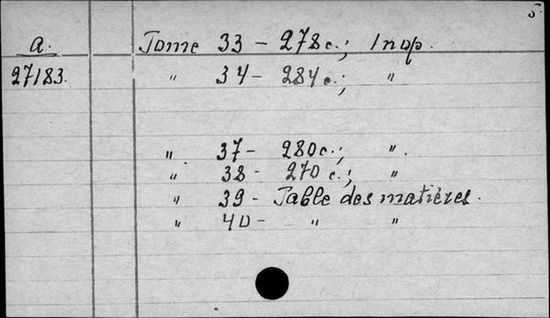 5.
A. Tome 33 - 278 с.; Інор.
27183. " 34 - 284 с.; "
" 37 - 280 с.; ".
" 38 - 270 с.; "
" 39 - Table des matières.
" 40 - " "